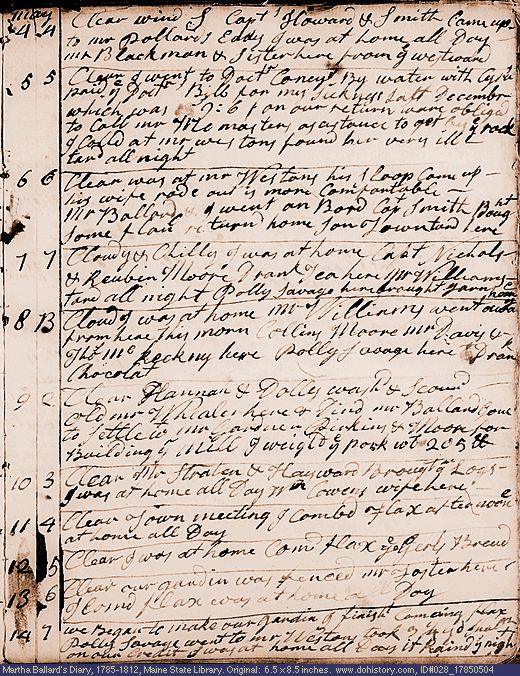 may
4 4 Clear wind S Capt Howard & Smith Came up
to mr Pollards Eddy I was at home all Day
mr Blackman & Sister here from ye westward
5 5 Clear I went to Doct Conys By water with
paid ye Doctr Bill for my Sickness Last Decembr
which was on our return were obliged
to Call mr masters asistance to get ye rack
I Calld at mr westons found her very ill
tard all night
6 6 Clear I was at mr Westons his Sloop Came up
his wife rode out is more Comfortable
Mr Ballard & I went on Bord Capt Smith Bought
Some flax return home Jon Jownton here
7 7 Clowdy & Chilly I was at home Capt Nichols
& Reubin Moore Drank Tea here Mr Williams
tard all night Polly Savage here brought yarn home
8 B Cloudy I was at home mr Williams went out
from here this morn Collins Moore mr Davis &
Thos Mc Keckny here Polly Savage here Drank
Chocolat
9 2 Clear Hannah & Dolly washt & Scowrd
old mr Whiales here & mr Ballard Gone
to Settle to mr Gardner Perkins & Moore for
Building ye Mill I weight ye pork wt 205 lb
10 3 Clear Mr Straten & Hayward Brought ye Logs
I was at home all Day wm Cowens wife here
11 4 Clear Town meeting I Combd flax afternoone
at home all Day
12 5 Clear I was at home Comd flax ye Girls Brewd
13 6 Clear our gardin was fenced mr Foster here
I Comd flax was at home all Day
14 7 we Began to make our gardin I finisht Comeing flax
Polly Savage went to mr Westons took 2
on our Credit I was at home all Day it Raind ye night
Martha Ballard's Diary, 1785-1812, Maine State Library. Original: 6.5 x 8.5 inches. www.dohistory.com, ID#028_17850504